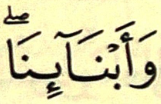 وَأَبْنَآئِنَاۖ